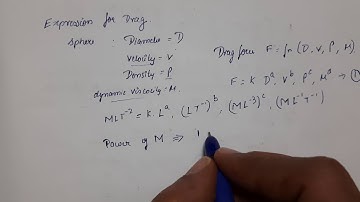 Expression for Drag.
Sphere : Diameter = D
velocity = V
Density = ρ
dynamic viscosity = μ
Drag force F = fn (D, V, ρ, μ)
F = K D^a, V^b, ρ^c, μ^d → ①
MLT^-2 = K. L^a, (LT^-1)^b, (ML^-3)^c, (ML^-1T^-1)
Power of M ⇒ 1